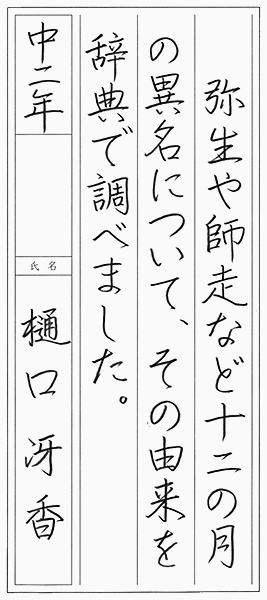 弥生や師走など十二の月
の異名について、その由来を
辞典で調べました。
中二年
氏名
樋口冴香